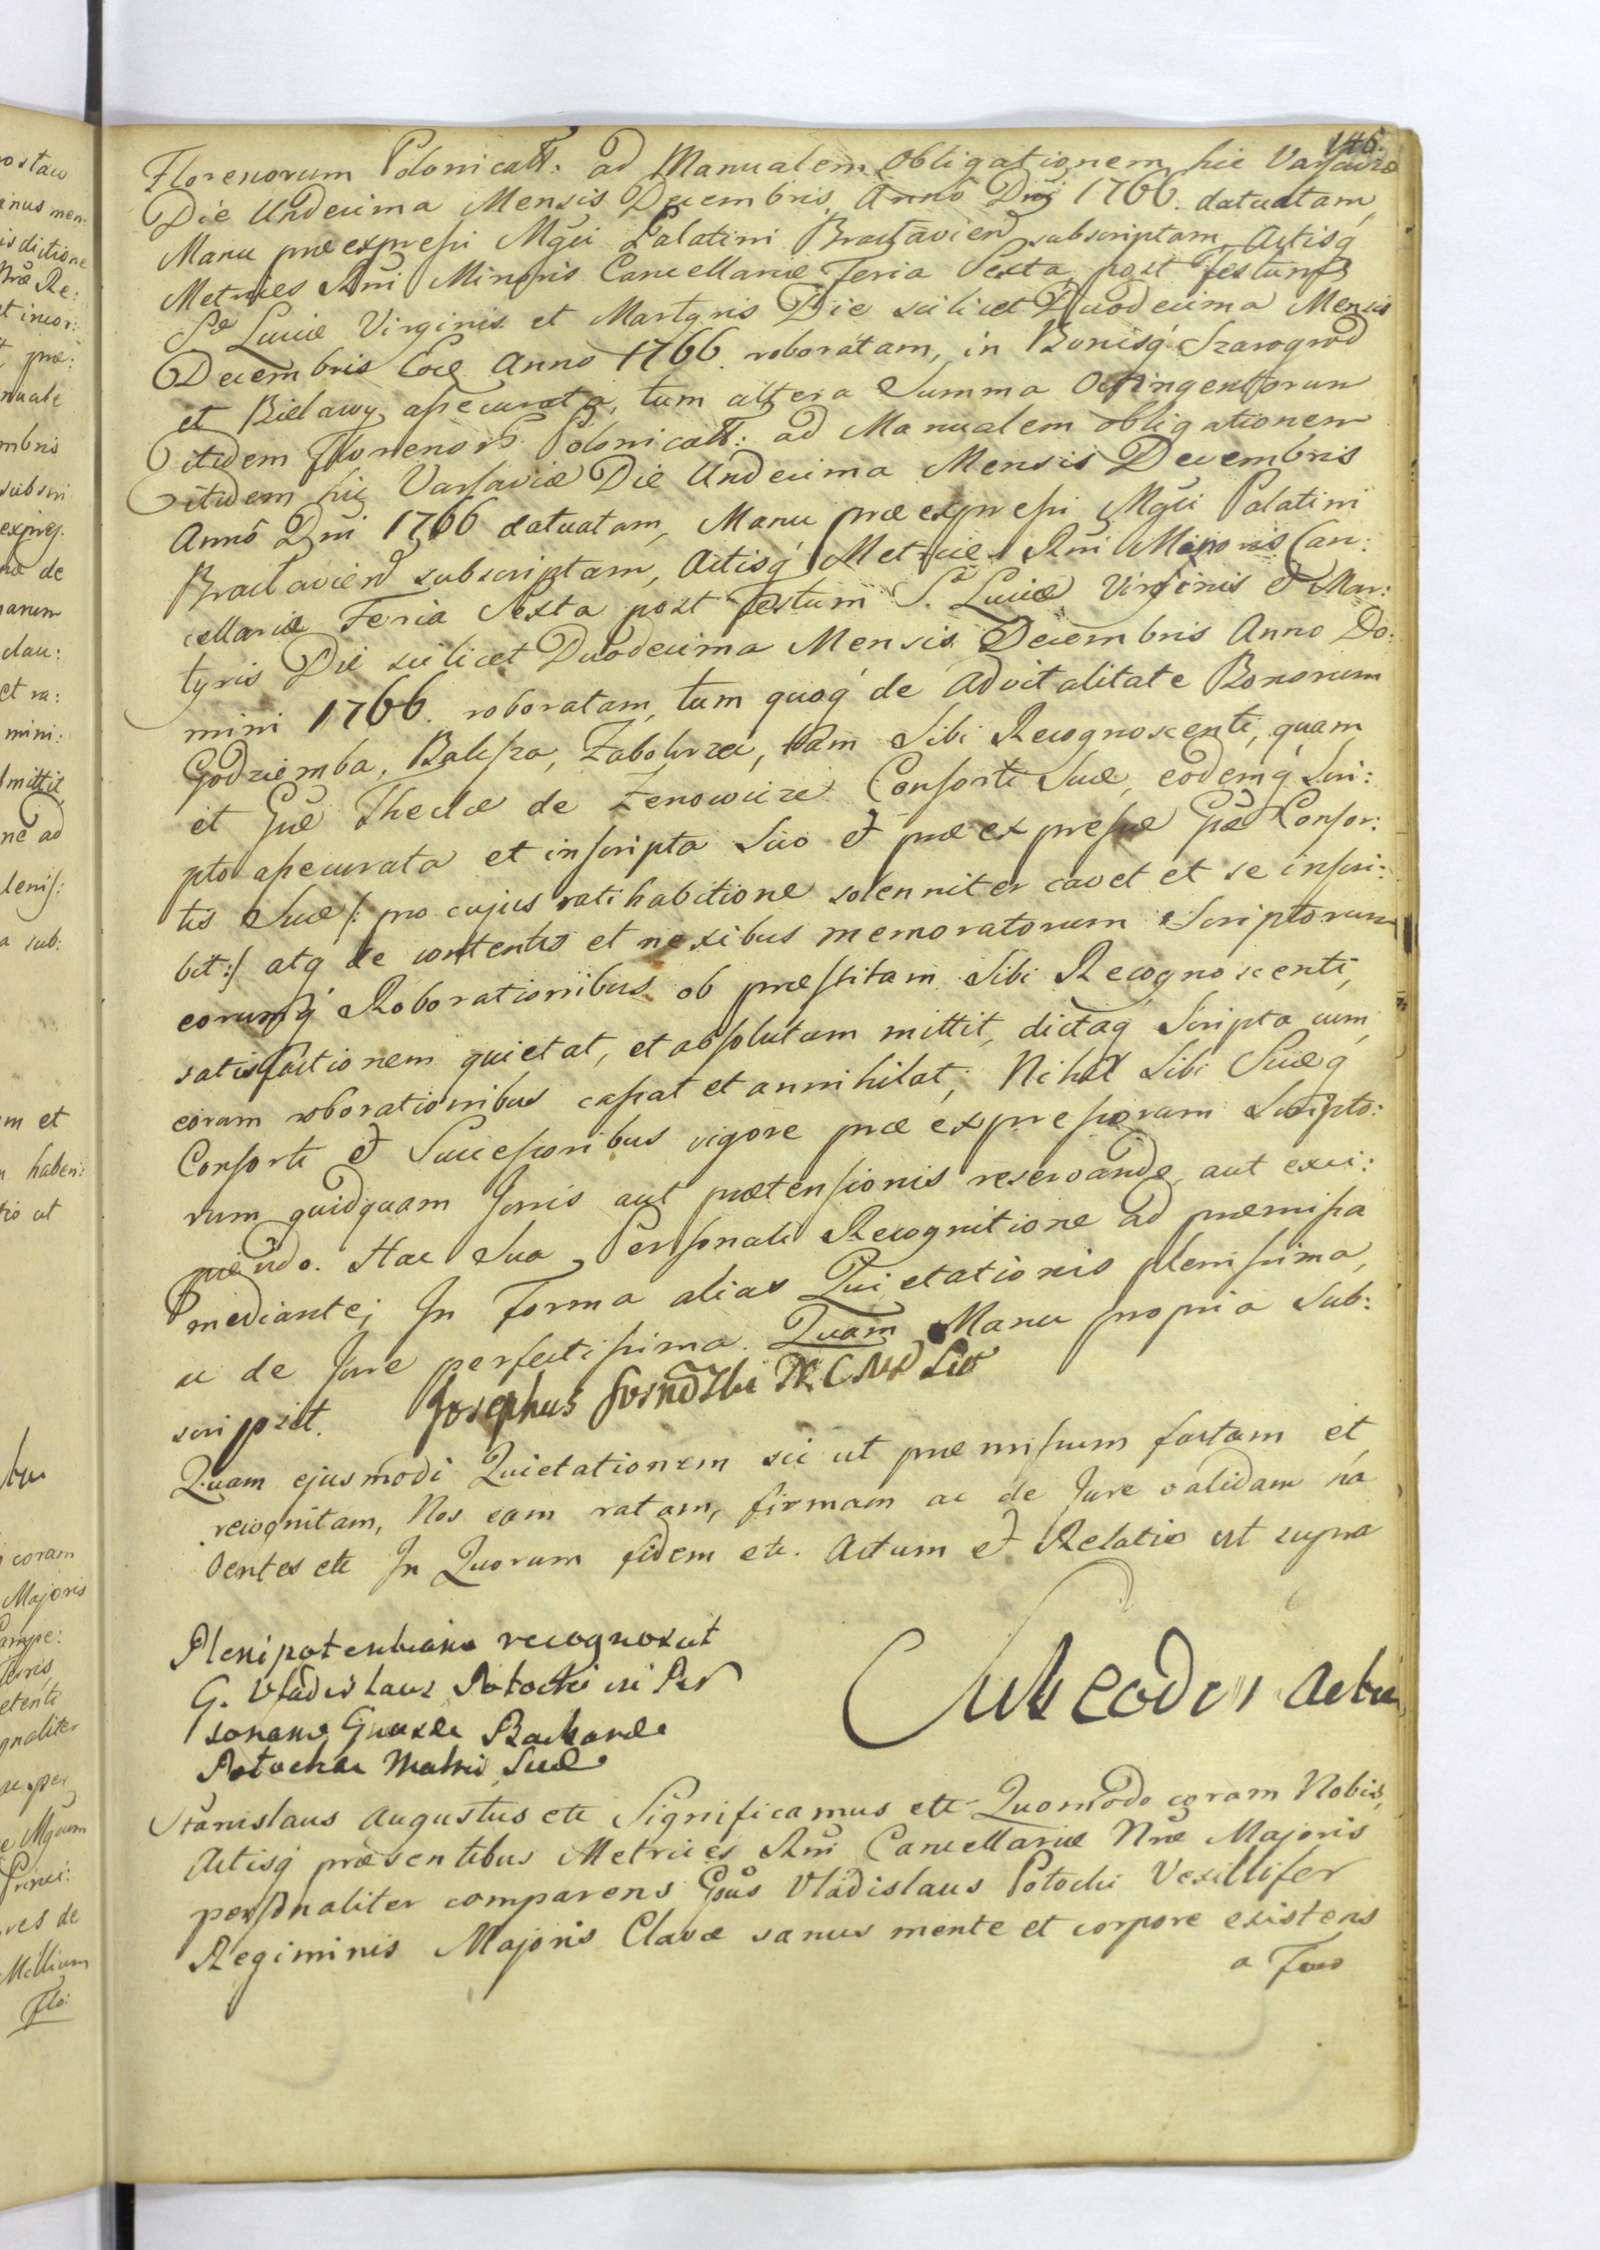 146.
Florenorum Polonicall: ad Manualem Obligationem hic Varsaviæ
Die Undecima Mensis Decembris Annô Dni 1766. datuatam,
Manu præexpressi Mgci Palatini Bractavien subscriptam, Actisq
Metrices Rni Minoris Cancellariæ Feria Sexta post Festum
Sæ Luciæ Virginis et Martyris Die scilicet Duodecima Mensis
Decembris Anno 1766. roboratam, in Bonisq Szarogrod
et Bielawy assecurata, tum altera Summa Octingentorum
itidem Florenor Polonicall: ad Manualem obligationem
itidem hic Varsaviæ Die Undecima Mensis Decembris
Annô Dni 1766 datuatam, Manu præexpressi Mgci Palatini
Bractavien subscriptam, Actisq Metrices Rni Minoris Can:
cellariæ Feria Sexta post Festum S. Luciæ Virginis et Mar:
tyris Die scilicet Duodecima Mensis Decembris Anno Do:
mini 1766. roboratam, tum quoq de Advitalitate Bonorum
Godziemba, Balissa, tam Sibi Recognoscenti, quam
et Gsæ Theclæ de Zenowicze Consorti Suæ, eodemq Scri:
pto assecurata et inscripta Suo et præexpressæ Gsæ Consor:
tis Suæ /: pro cujus ratihabitione solenniter cavet et se inscri:
bit :/ atq de contentis et nexibus memoratorum Scriptorum
eorumq Roborationibus ob præstitam Sibi Recognoscenti,
satisfactionem quietat, et absolutam mittit, dictaq Scripta cum
eoram roborationibus cassat et annihilat, Nihil Sibi Suæq
Consorti et Successoribus vigore præexpressorum Scripto:
rum quidquam Juris aut prætensionis reservando, aut exci:
piendo. Hac Sua Personali Recognitione ad præmissa
mediante; In Forma alias Quietationis plenissima,
ac de Jure perfectissima. Quam Manu propria Sub:
scripsit. Josephus
Quam ejusmodi Quietationem sic ut præmissum factam et
recognitam, Nos eam ratam, firmam ac de Jure validam ha
bentes etc In Quorum fidem etc. Actum et Relatio ut supra
Plenipotentiam recognoscit
G. Vladislaus Potocki in Per
sonam Gnosæ Barbaræ
Potockae Matri Suæ
Sub eodem Actu
Stanislaus Augustus etc Significamus etc Quomodo coram Nobis,
Actisq præsentibus Metrices Rni Cancellariæ Nræ Majoris
personaliter comparens Gsus Vladislaus Potocki Vexillifer
Regiminis Majoris Clavæ sanus mente et corpore existens
a Foro